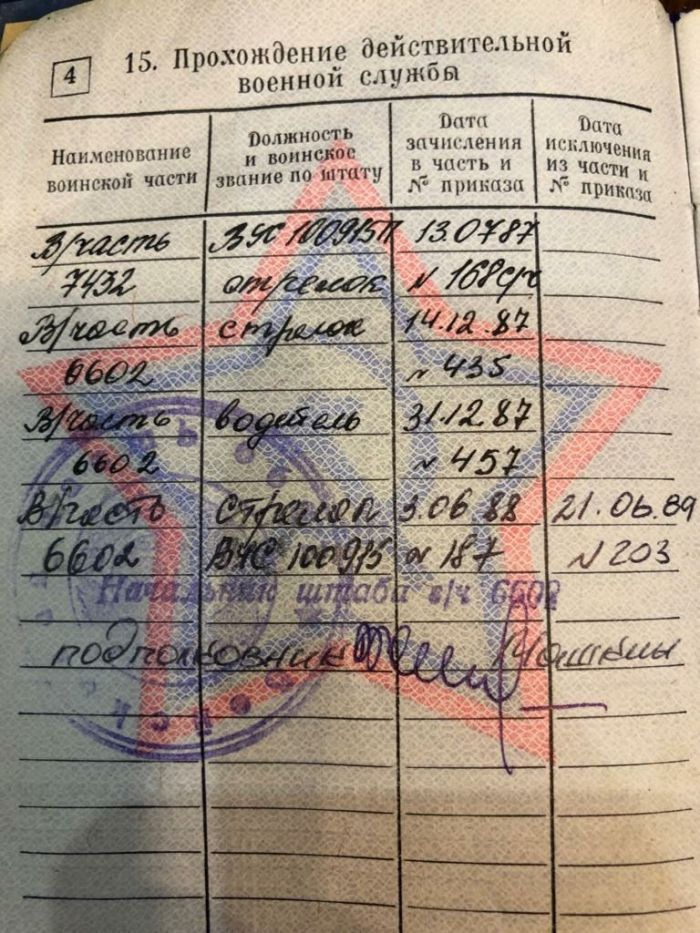 4
15. Прохождение действительной
военной службы
Наименование воинской части
Должность и воинское звание по штату
Дата зачисления в часть и № приказа
Дата исключения из части и № приказа
В/часть ВУС 100915П 13.0787
7432 стрелок N 168с/ч
В/часть стрелок 14.12.87
6602 N 435
В/часть водитель 31.12.87
6602 N 457
В/часть стрелок 3.06 88 21.06.89
6602 ВУС 100915 N 187 N 203
Начальник штаба в/ч 6602
подполковник